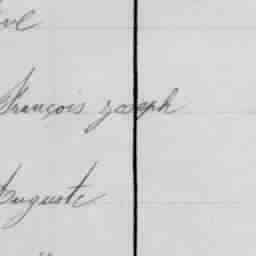 François joseph
Auguste